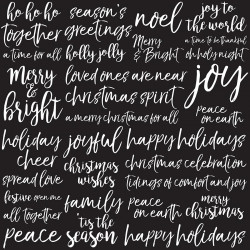 ho ho ho
together
a time for all
season's
greetings
holly jolly
noel
Merry
& Bright
joy to
the world
a time to be thankful
oh holy night
merry
&
bright
loved ones are near
christmas spirit
a merry christmas for all
joy
peace
on earth
holiday
cheer
joyful
christmas
wishes
happy holidays
christmas celebration
tidings of comfort and joy
spread love
festive
all together
family
'tis the
season
peace
on earth
merry
christmas
peace
happy holidays